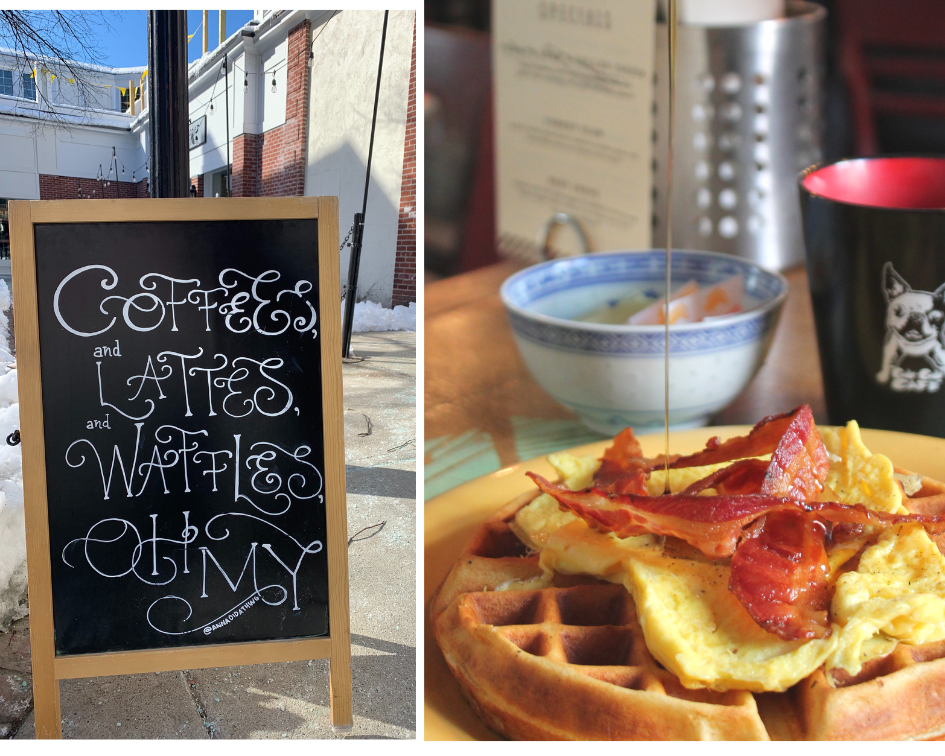 COFFEES,
and
LATTES,
and
WAFFLES,
OH MY
@ANNADIDATHING
SPECIALS